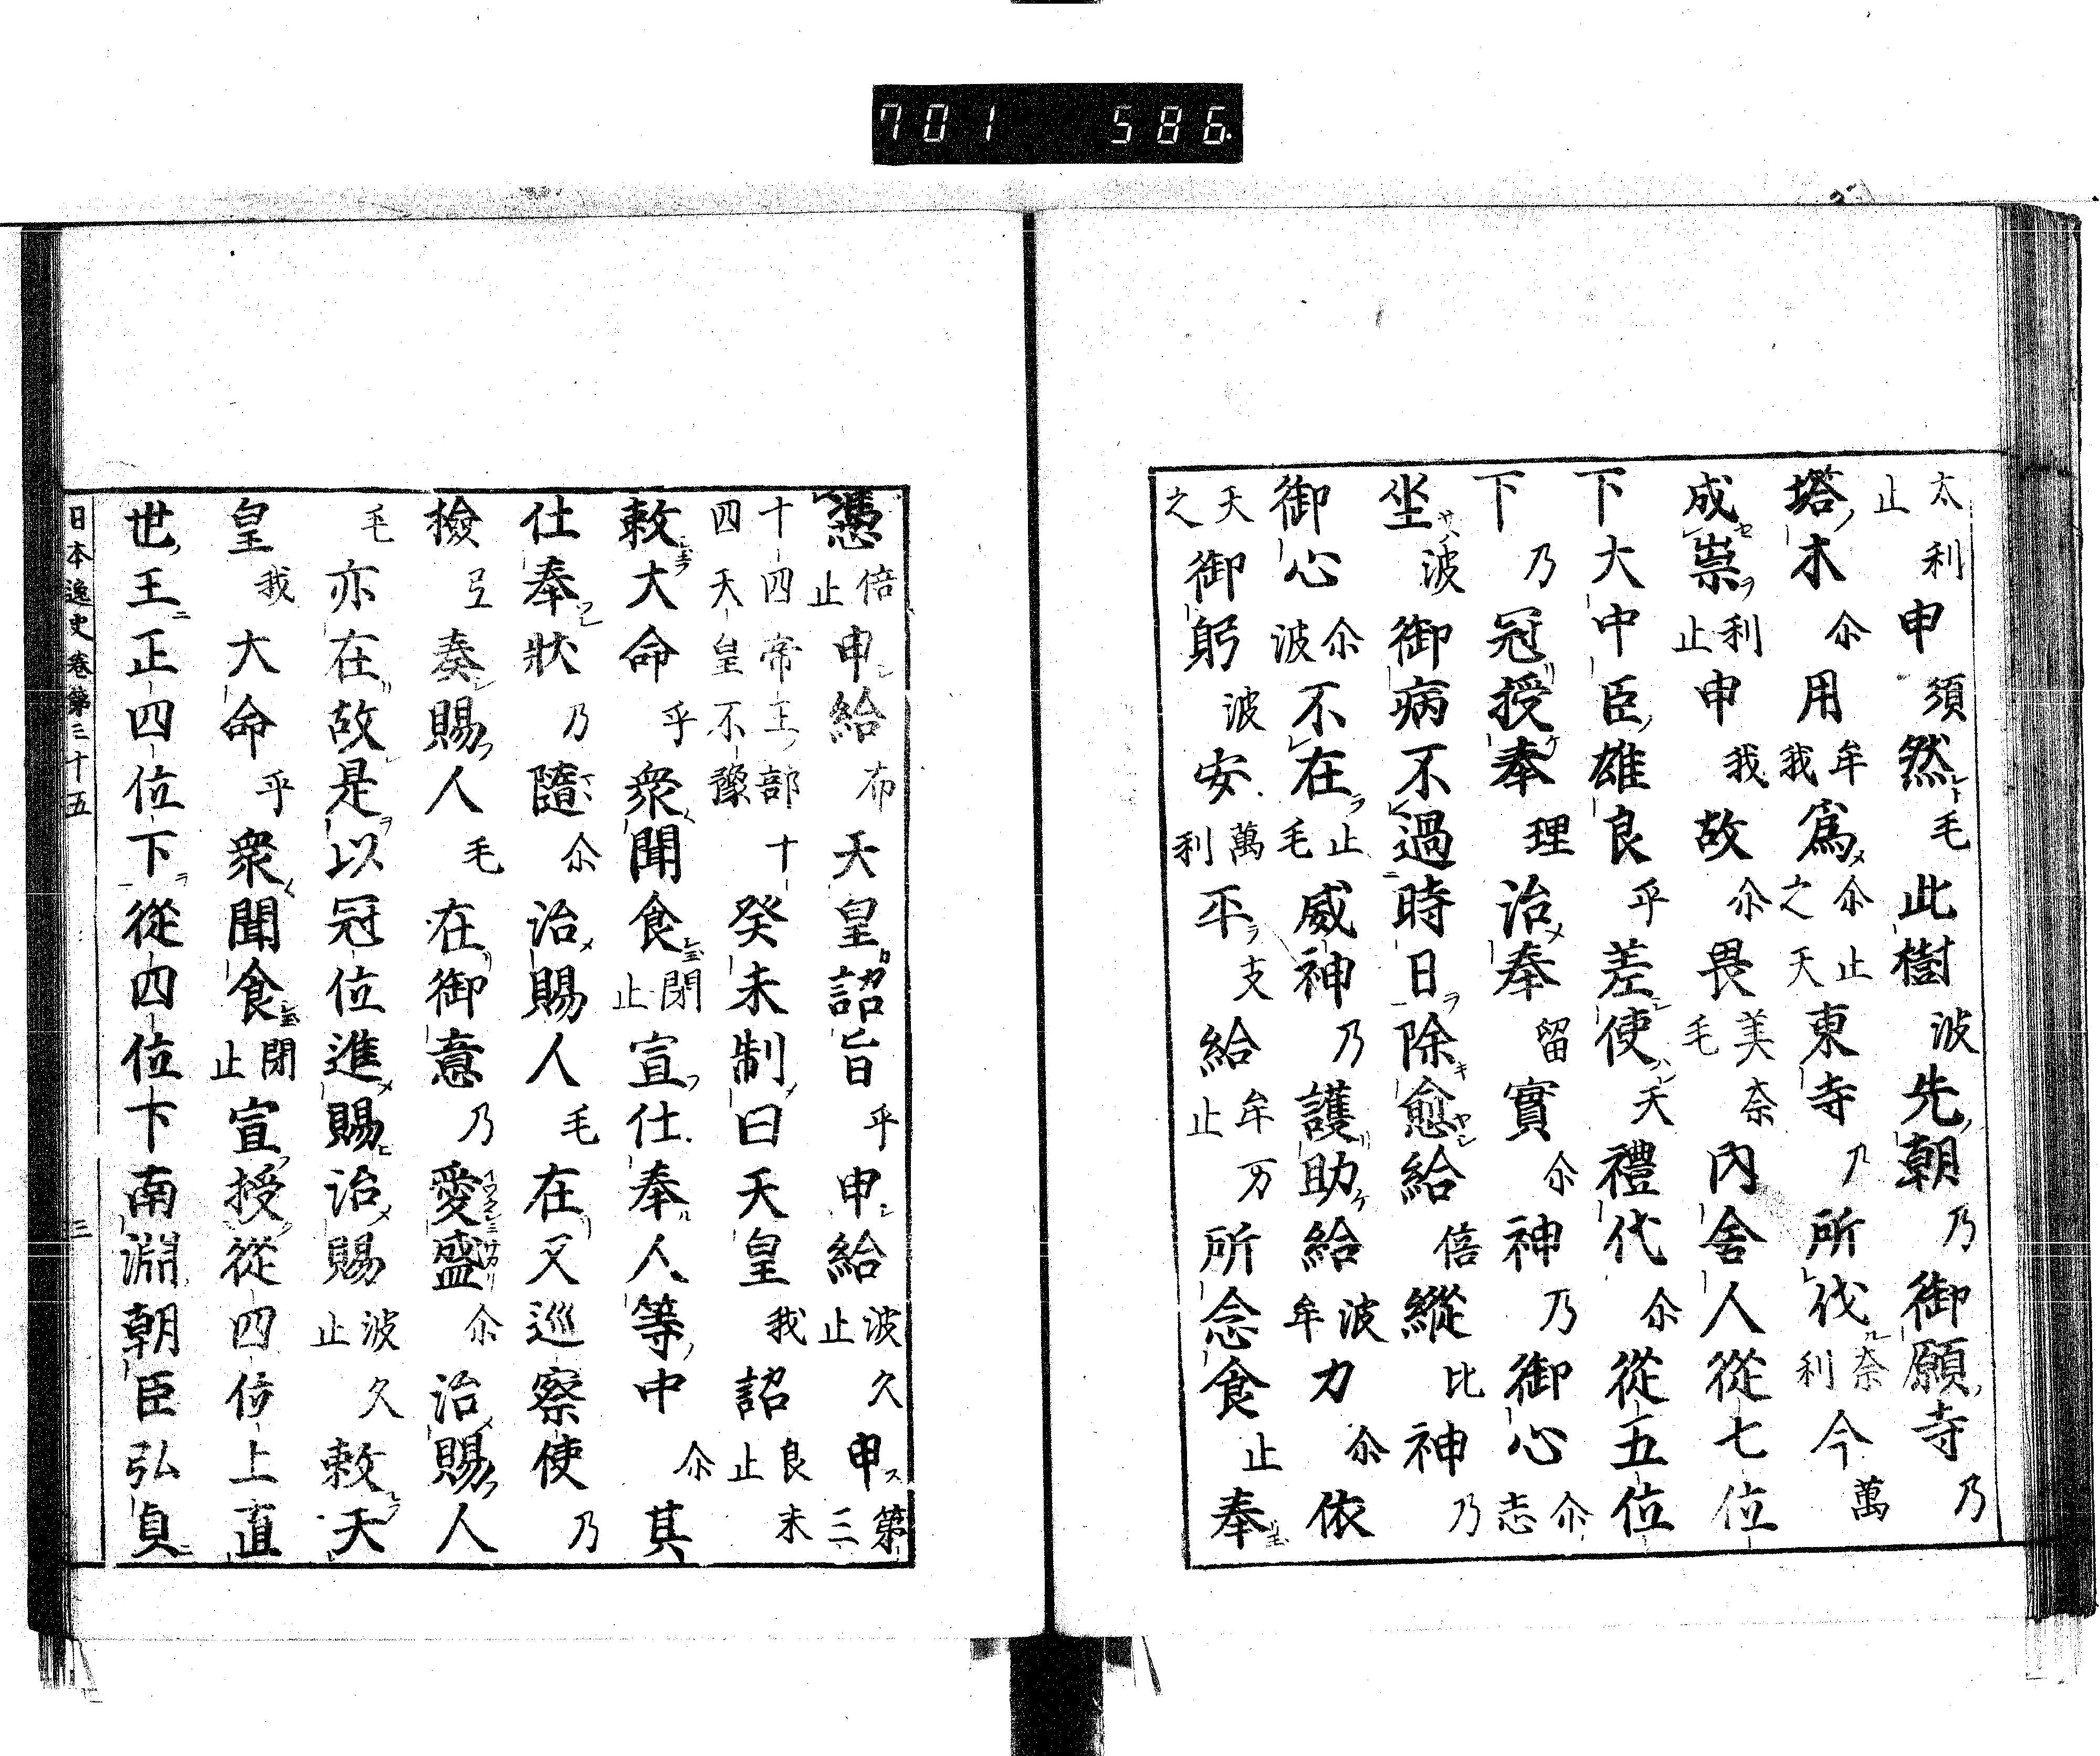 701 586
太利止申須然毛此樹波先朝乃御願寺乃
塔木尒用牟我爲尒止之天東寺乃所伐奈利今萬
成祟利止申我故尒畏美奈毛內舍人從七位
下大中臣雄良乎差使天禮代尒從五位
下乃冠授奉理治奉留實尒神乃御心尒志
坐波御病不過時日除愈給倍縱比神乃
御心尒波不在止毛威神乃護助給波牟力尒依
天之御躬波安萬利平支給牟止万所念食止奉
憑倍止申給布天皇詔旨乎申給波久止申第三
十四帝王部十四天皇不豫癸未制曰天皇我詔良末止
敕大命乎衆聞食閉止宣仕奉人等中尒其
仕奉狀乃隨尒治賜人毛在又巡察使乃
撿弖奏賜人毛在御意乃愛盛尒治賜人
毛亦在故是以冠位進賜治賜波久止敕天
皇我大命乎衆聞食閉止宣授從四位上直
世王正四位下從四位下南淵朝臣弘貞
日本逸史卷第三十五 三